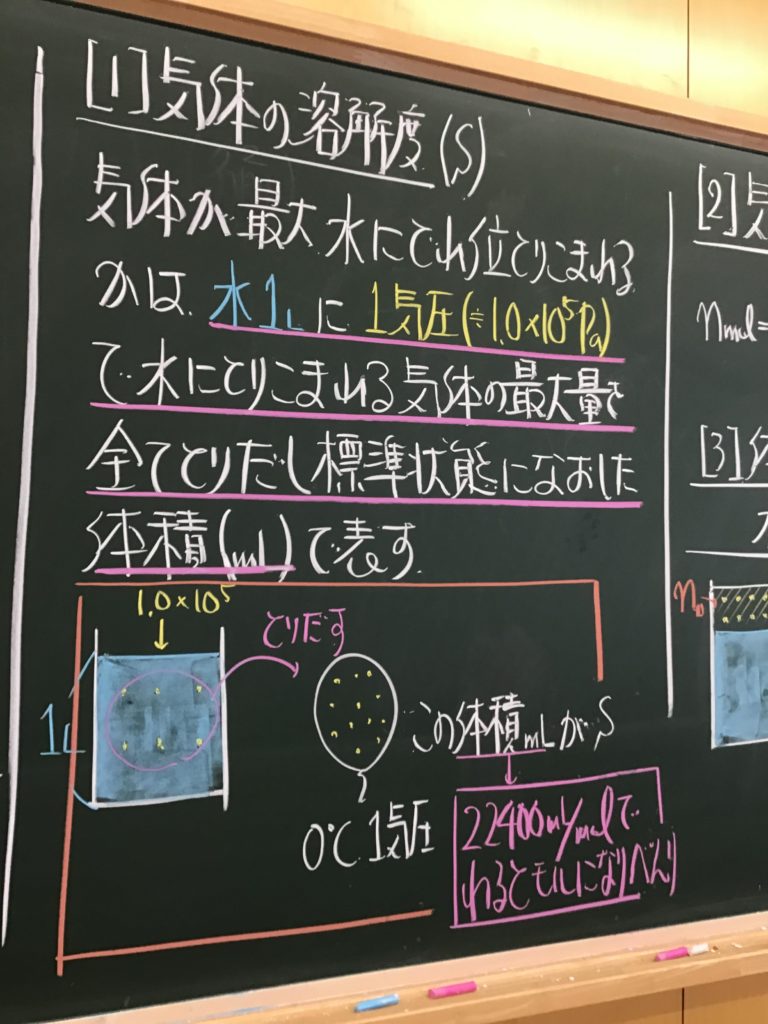 [1]気体の溶解度(S)
気体が最大水にどれ位とりこまれる
かは 水1Lに 1気圧(≒1.0×10⁵Pa)
で水にとりこまれる気体の最大量を
全てとりだし標準状態になおした
体積(mL)で表す.
1.0×10⁵
とりだす
1L
この体積mLがS
0℃ 1気圧
22400mL/molで
わるとモルになりべんり
[2]気
nmol=
[3]体
n₀